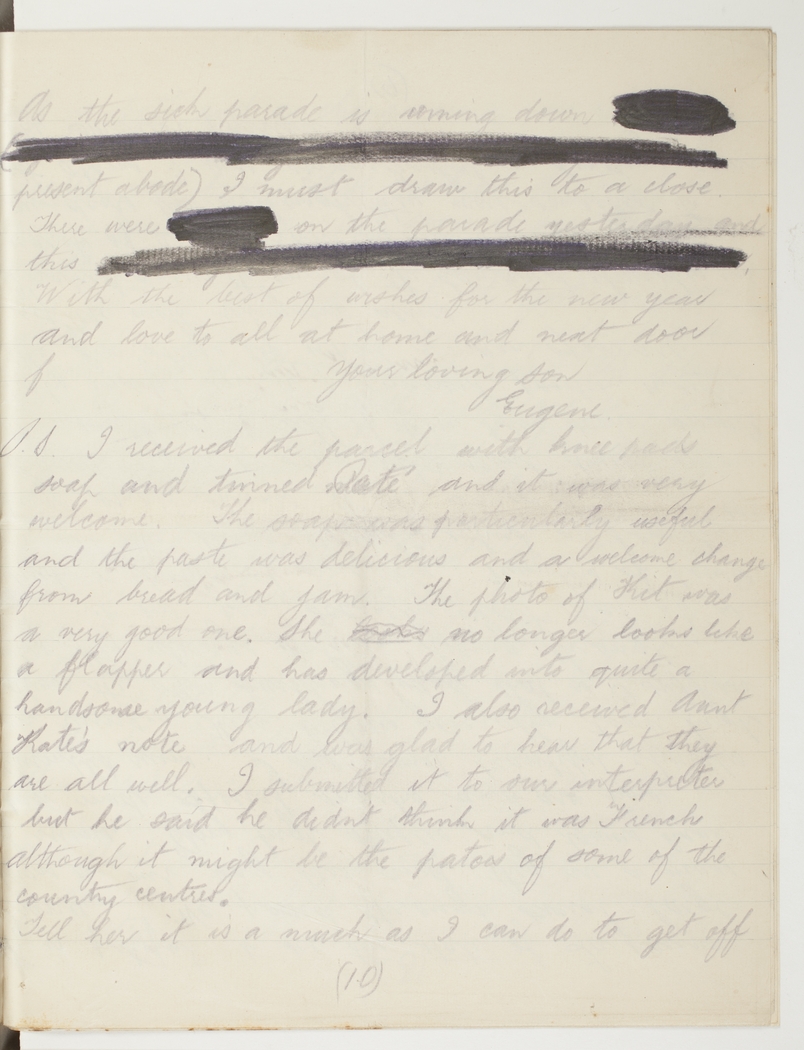 As the sick parade is coming down
present abode) I must draw this to a close.
There were on the parade yesterday and
this
With the best of wishes for the new year
and love to all at home and next door
f Your loving son
Eugene.
P.S. I received the parcel with knee pads
soap and tinned Paté and it was very
welcome. The soap was particularly useful
and the paste was delicious and a welcome change
from bread and jam. The photo of Kit was
a very good one. She no longer looks like
a flapper and has developed into quite a
handsome young lady. I also received Aunt
Kate's note and was glad to hear that they
are all well. I submitted it to our interpreter
but he said he didnt think it was French
although it might be the patois of some of the
country centres.
Tell her it is a much as I can do to get off
(10)